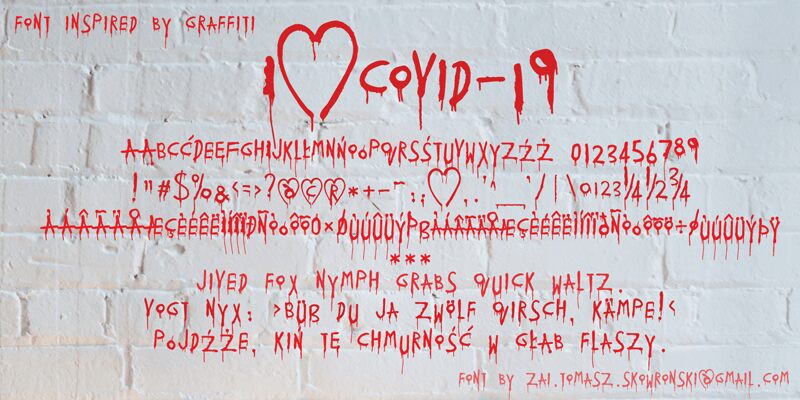 FONT INSPIRED BY GRAFFITI
I♡COVID-19
AĄBCĆDEĘFGHIJKLŁMNŃOÓPQRSŚTUVWXYZŹŻ 0123456789
!"#$%&<=>?@©®*+-¯.;♡,.'^__'/|\0123¼½¾
ÀÁÂÃÄÅÆÇÈÉÊËÌÍÎÏÐÑÒÓÔÕÖ×ØÙÚÛÜÝÞßÀÁÂÃÄÅÆÇÈÉÊËÌÍÎÏÐÑÒÓÔÕÖ÷ØÙÚÛÜÝÞŸ
***
JIVED FOX NYMPH GRABS QUICK WALTZ.
VOGT NYX: >BÜß DU JA ZWÖLF QIRSCH, KÄMPE!<
PÓJDŹŻE, KIŃ TĘ CHMURNOŚĆ W GŁĄB FLASZY.
FONT BY ZAI.TOMASZ.SKOWRONSKI@GMAIL.COM